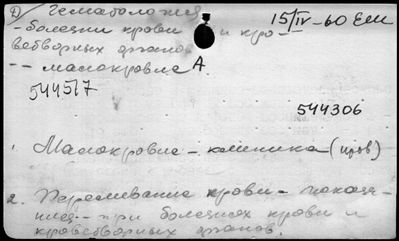 Д) Гематология
15/IV-60 Ели
- болезни крови и кро-
ветворных органов
-- малокровие А.
544517
544306
1. Малокровие - клиника (пров)
2. Переливание крови - показа-
ния -- при болезнях крови и
кроветворных органов.